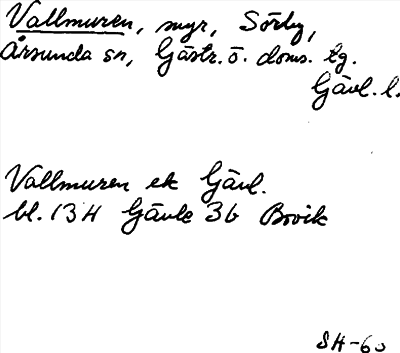 Vallmuren, myr, Sörby,
Årsunda sn, Gästr. ö. doms. tg.
Gävl. l.
Vallmuren ek Gävl.
bl. 13H Gävle 3b Brovik
SH-60